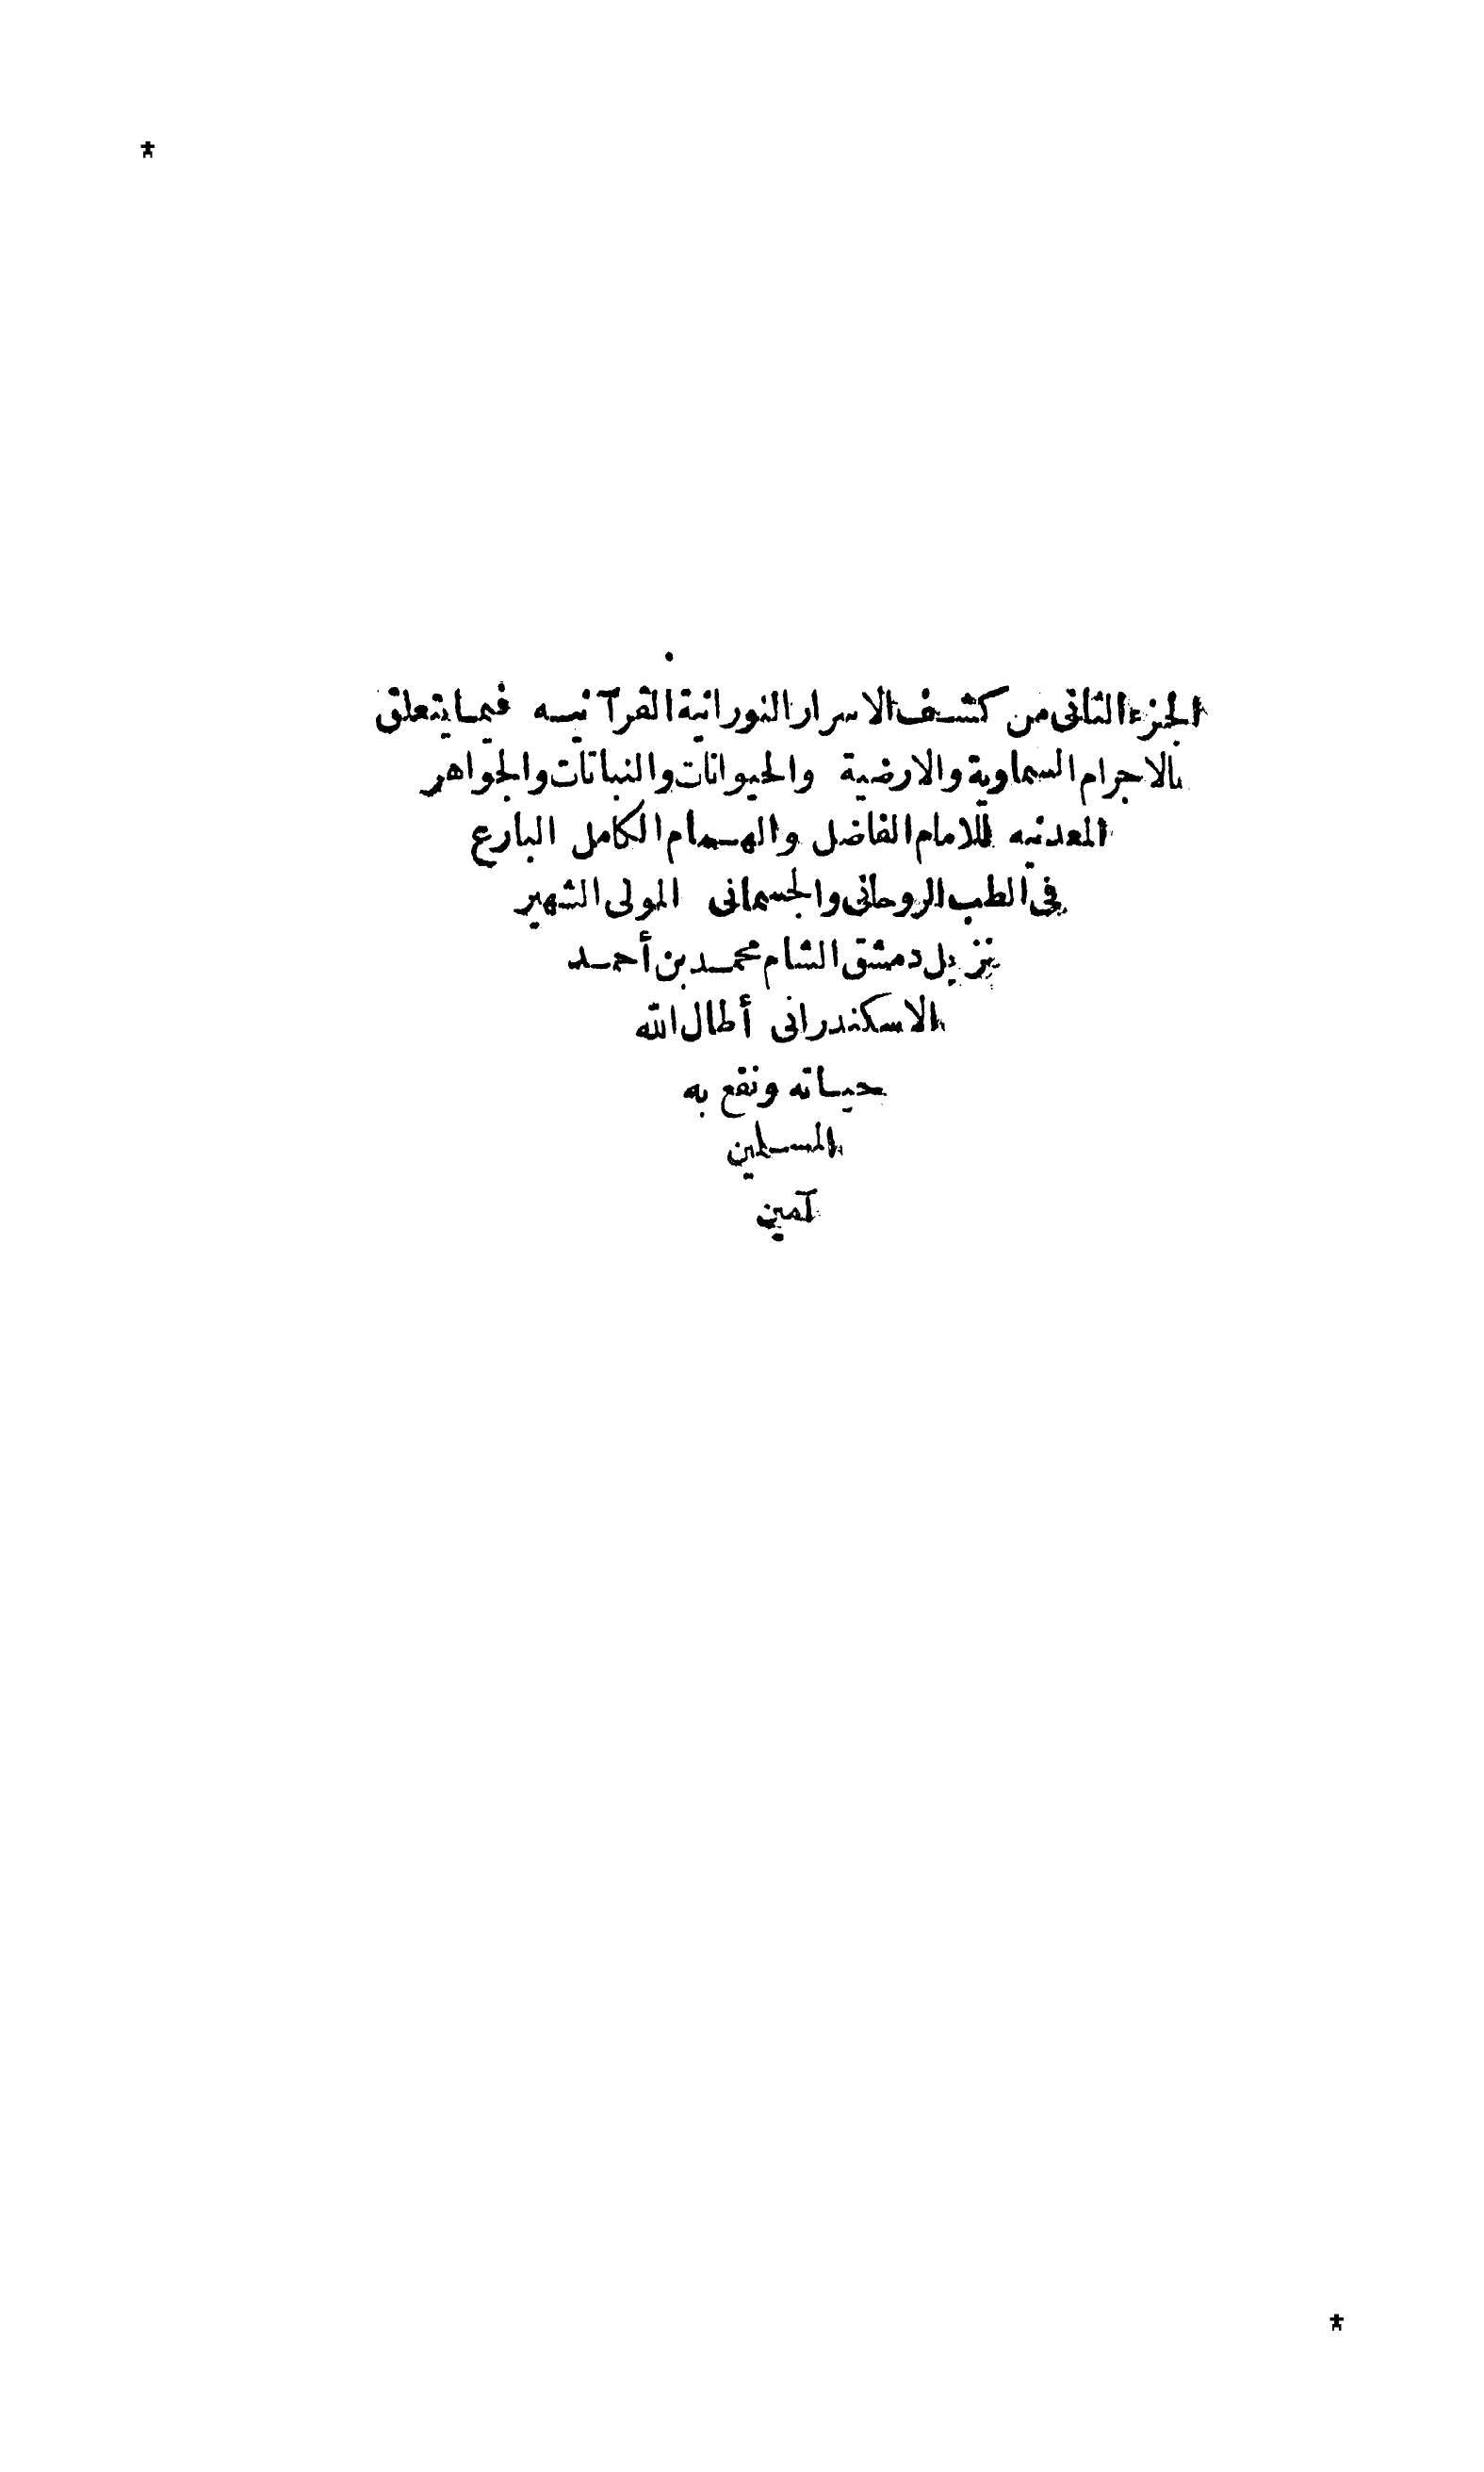 الجزء الثانى من كشف الاسرار النورانية القرآنيه فيما يتعلق
بالاجرام السماوية والارضية والحيوانات والنباتات والجواهر
المعدنيه للامام الفاضل والهمام الكامل البارع
فى الطب الروحانى والجسمانى المولى الشهير
نزيل دمشق الشام محمد بن أحمد
الاسكندرانى أطال الله
حياته ونفع به
المسلمين
آمين